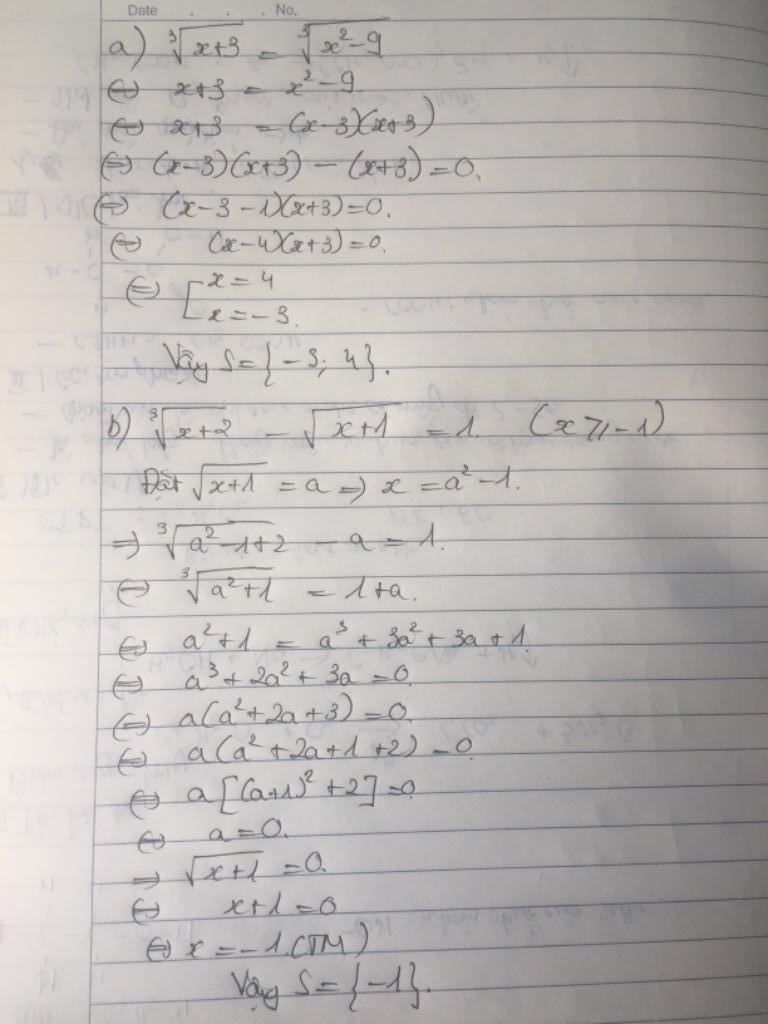 Date . . . No.
a) ∛(x+3) = ∛(x²-9)
⇔ x+3 = x²-9
⇔ x+3 = (x-3)(x+3)
⇔ (x-3)(x+3) - (x+3) = 0.
⇔ (x-3-1)(x+3)=0.
⇔ (x-4)(x+3)=0.
⇔ [ x = 4
x = -3.
Vậy S={-3; 4}.
b) ∛(x+2) - √(x+1) = 1. (x ≥ -1)
Đặt √(x+1) = a ⇒ x = a²-1.
⇒ ∛(a²-1+2) - a = 1.
⇔ ∛(a²+1) = 1+a.
⇔ a²+1 = a³+3a²+3a+1.
⇔ a³+2a²+3a = 0
⇔ a(a²+2a+3) = 0.
⇔ a(a²+2a+1+2) = 0
⇔ a[(a+1)²+2] = 0
⇔ a=0.
⇒ √(x+1) = 0.
⇔ x+1 = 0
⇔ x = -1. (TM)
Vậy S = {-1}.